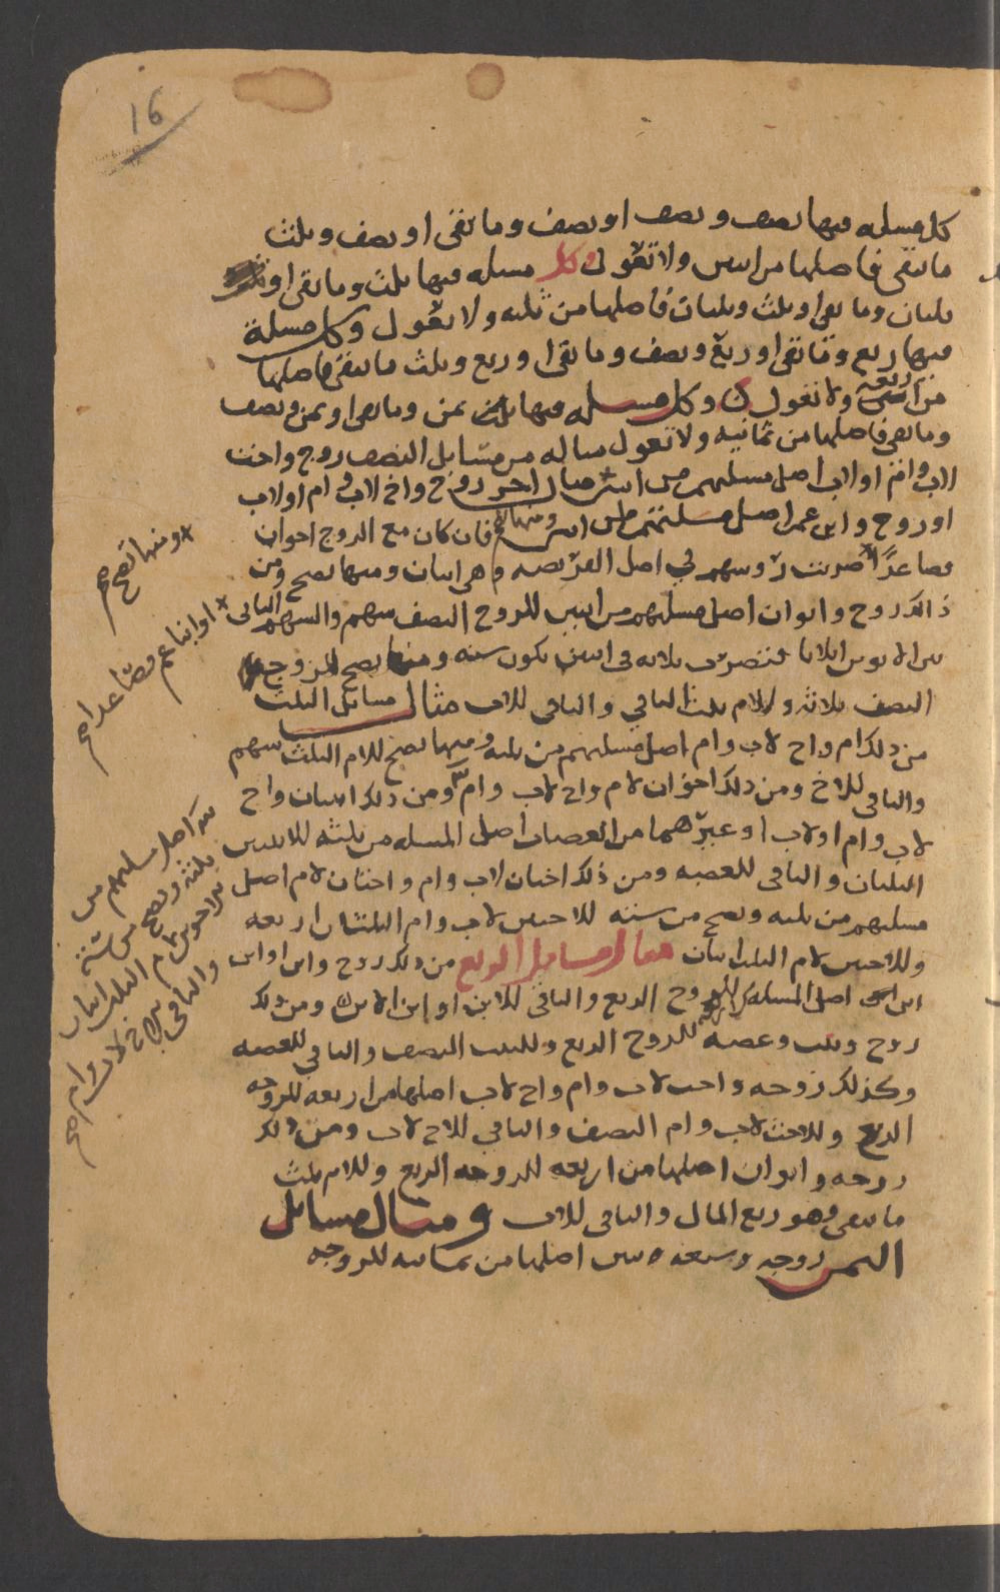 16
كل مسله فيها نصف ونصف او نصف وما بقى او نصف وثلث
ما بقى فاصلها من اثنين ولا تعول وكل مسله فيها ثلث وما بقى او
ثلثان وما بقى او ثلث وثلثان فاصلها من ثلثه ولا تعول وكل مسلة
فيها ربع وما بقى او ربع ونصف وما بقى او ربع وثلث ما بقى فاصلها
من اربعه ولا تعول وكل مسله فيها ثمن وما بقى او ثمن ونصف
وما بقى فاصلها من ثمانيه ولا تعول مثاله من مسايل النصف زوج واخت
لاب وام او لاب اصل مسلتهم من اثنين مثال اخر زوج واخ لاب وام او لاب
او زوج وابن عم اصل مسلتهم من اثنين ومنها تصح فان كان مع الزوج اخوان
فصاعدًا ضربت رؤسهم في اصل الفريضه وهى اثنان ومنها تصح ومن
ذالك زوج وابوان اصل مسلتهم من اثنين للزوج النصف سهم والسهم الباقي
بين الابوين اثلاثا فتضرب ثلاثه في اثنين يكون سته ومنها تصح للزوج
النصف ثلاثه وللام ثلث الباقي والباقي للاب مثال مسايل الثلث
من ذلك ام واخ لاب وام اصل مسلتهم من ثلثه ومنها تصح للام الثلث سهم
والباقي للاخ ومن ذلك اخوان لام واخ لاب وام ومن ذلك ابنتان واخ
لاب وام او لاب او غيرهما من العصبات اصل المسله من ثلثه للابنتين
الثلثان والباقي للعصبه ومن ذلك اختان لاب وام واختان لام اصل
مسلتهم من ثلثه وتصح من سته للاختين لاب وام الثلثان اربعه
وللاختين لام الثلث اثنان مثال مسايل الربع من ذلك زوج وابن او ابن
ابن اصل المسله من اربعه للزوج الربع والباقي للابن او ابن الابن ومن ذلك
زوج وبنت وعصبه للزوج الربع وللبنت النصف والباقي للعصبه
وكذلك زوجه واخت لاب وام واخ لاب اصلها من اربعه للزوجه
الربع وللاخت لاب وام النصف والباقي للاخ لاب ومن ذلك
زوجه وابوان اصلها من اربعه للزوجه الربع وللام ثلث
ما بقى وهو ربع المال والباقي للاب ومثال مسايل
الثمن زوجه وسبعة بنين اصلها من ثمانيه للزوجه
ومنها تصح صح
او ابنا عم فصاعدا صح
اصل مسلتهم من
ثلثه وتصح من سته
للاخوين لام الثلث اثنان
والباقي للاخ لاب وام صح